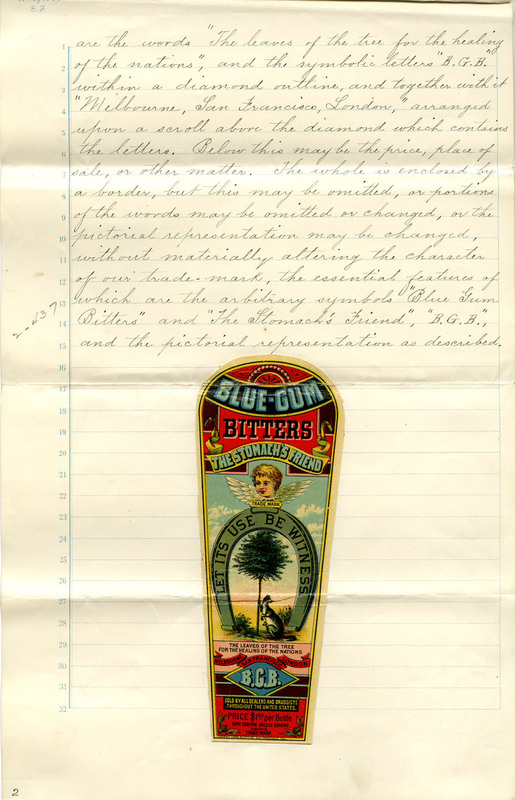 S.F.
1 are the words "The leaves of the tree for the healing
2 of the nations", and the symbolic letters "B.G.B."
3 within a diamond outline, and together with it
4 "Melbourne, San Francisco, London," arranged
5 upon a scroll above the diamond which contains
6 the letters. Below this may be the price, place of
7 sale, or other matter. The whole is enclosed by
8 a border, but this may be omitted, or portions
9 of the words may be omitted or changed, or the
10 pictorial representation may be changed,
11 without materially altering the character
12 of our trade-mark, the essential features of
13 which are the arbitrary symbols "Blue Gum
14 Bitters" and "The Stomach's Friend", "B.G.B.",
15 and the pictorial representation as described.
16
17
18
19
20
21
22
23
24
25
26
27
28
29
30
31
32
BLUE-GUM
BITTERS
THE STOMACH'S FRIEND
TRADE MARK
LET ITS USE BE WITNESS
THE LEAVES OF THE TREE
FOR THE HEALING OF THE NATIONS
MELBOURNE SAN FRANCISCO LONDON
B.G.B.
SOLD BY ALL DEALERS AND DRUGGISTS
THROUGHOUT THE UNITED STATES.
PRICE $1.00 per Bottle
TRADE MARK
2